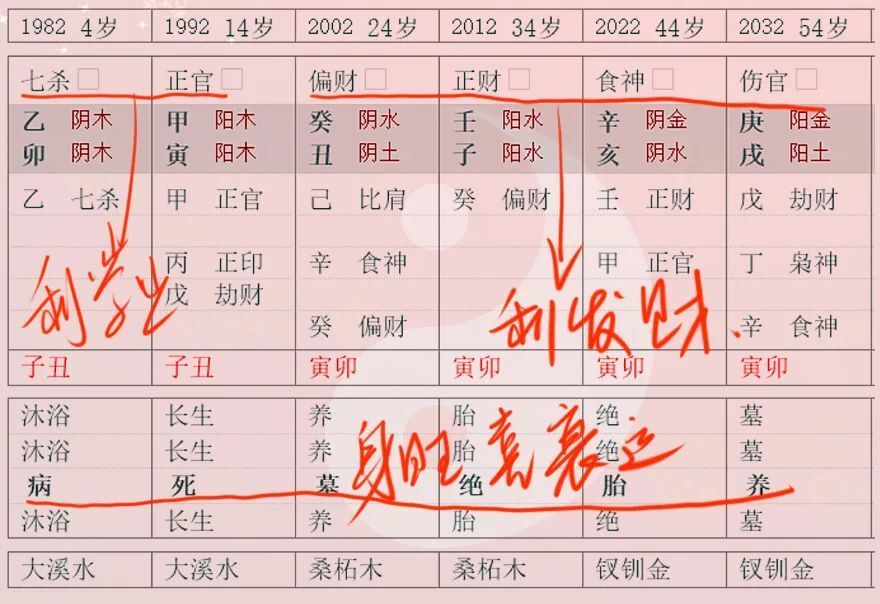 1982 4岁 1992 14岁 2002 24岁 2012 34岁 2022 44岁 2032 54岁
七杀 正官 偏财 正财 食神 伤官
乙 阴木 甲 阳木 癸 阴水 壬 阳水 辛 阴金 庚 阳金
卯 阴木 寅 阳木 丑 阴土 子 阳水 亥 阴水 戌 阳土
乙 七杀 甲 正官 己 比肩 癸 偏财 壬 正财 戊 劫财
丙 正印 辛 食神 甲 正官 丁 枭神
戊 劫财
癸 偏财 辛 食神
利学业
利发财、
子丑 子丑 寅卯 寅卯 寅卯 寅卯
沐浴 长生 养 胎 绝 墓
沐浴 长生 养 胎 绝 墓
身旺喜衰运
病 死 墓 绝 胎 养
沐浴 长生 养 胎 绝 墓
大溪水 大溪水 桑柘木 桑柘木 钗钏金 钗钏金